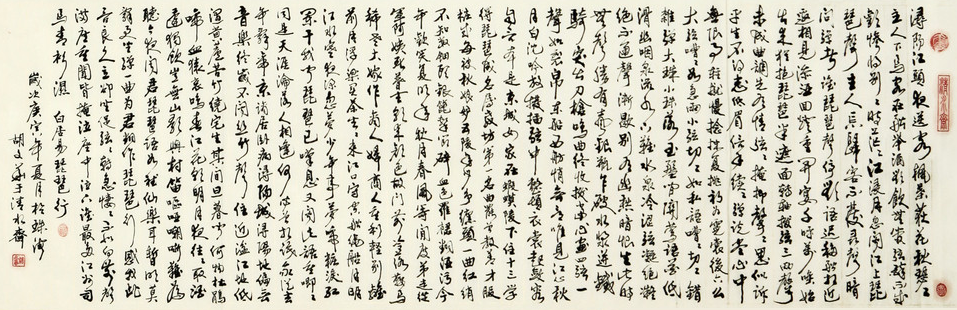 潯陽江頭夜送客楓葉荻花秋瑟瑟
主人下馬客在船舉酒欲飲無管弦醉不成
歡慘將別別時茫茫江浸月忽聞江上琵
琶聲主人忘歸客不發尋聲暗
問彈者誰琵琶聲停欲語遲移船相近
邀相見添酒回燈重開宴千呼萬喚始
出來猶抱琵琶半遮面轉軸撥弦三兩聲
未成曲調先有情弦弦掩抑聲聲思似訴
平生不得志低眉信手續續彈說盡心中
無限事輕攏慢撚抹復挑初為霓裳後六么
大弦嘈嘈如急雨小弦切切如私語嘈嘈切切錯
雜彈大珠小珠落玉盤間關鶯語花底
滑幽咽泉流水下灘水泉冷澀弦凝絕凝
絕不通聲漸歇別有幽愁暗恨生此時
無聲勝有聲銀瓶乍破水漿迸鐵
騎突出刀槍鳴曲終收撥當心畫四弦一
聲如裂帛東船西舫悄無言唯見江心秋
月白沉吟放撥插弦中整頓衣裳起斂容
自言本是京城女家在蝦蟆陵下住十三學
得琵琶成名屬教坊第一部曲罷曾教善才服
妝成每被秋娘妒五陵年少爭纏頭一曲紅綃
不知數鈿頭銀篦擊節碎血色羅裙翻酒污今
年歡笑復明年秋月春風等閒度弟走從
軍阿姨死暮去朝來顏色故門前冷落鞍馬
稀老大嫁作商人婦商人重利輕別離
前月浮梁買茶去去來江口守空船繞船月明
江水寒夜深忽夢少年事夢啼妝淚紅
闌干我聞琵琶已嘆息又聞此語重唧唧
同是天涯淪落人相逢何必曾相識我從去
年辭帝京謫居臥病潯陽城潯陽地僻無
音樂終歲不聞絲竹聲住近湓江地低
濕黃蘆苦竹繞宅生其間旦暮聞何物杜鵑
啼血猿哀鳴春江花朝秋月夜往往取酒
還獨傾豈無山歌與村笛嘔啞嘲哳難為
聽今夜聞君琵琶語如聽仙樂耳暫明莫
辭更坐彈一曲為君翻作琵琶行感我此
言良久立卻坐促弦弦轉急淒淒不似向前聲
滿座重聞皆掩泣座中泣下誰最多江州司
馬青衫濕 白居易琵琶行
歲次庚寅年夏月於珠海
胡文于清水齋